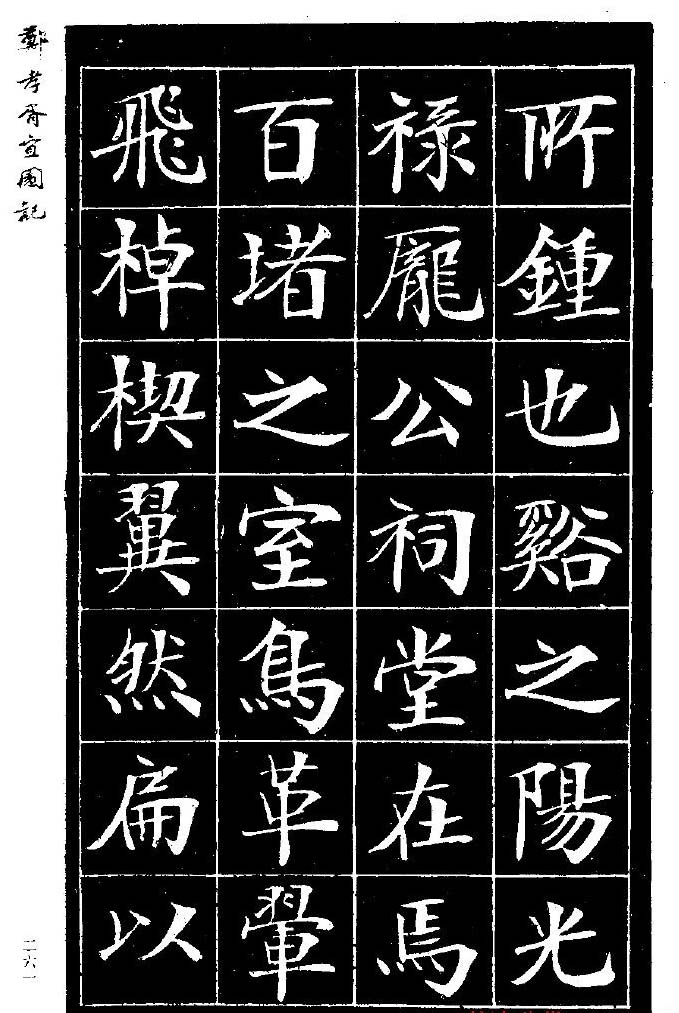 所鍾也谿之陽光
祿龐公祠堂在焉
百堵之室鳥革翬
飛棹楔翼然扁以
鄭孝胥宣圜記
二六一